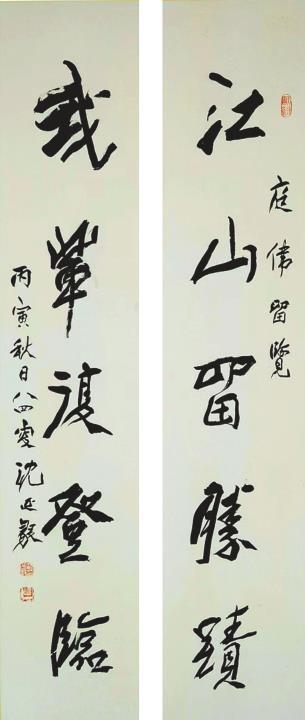 庭偉留覽
江山留勝蹟
我輩復登臨
丙寅秋日八四叟沈延毅